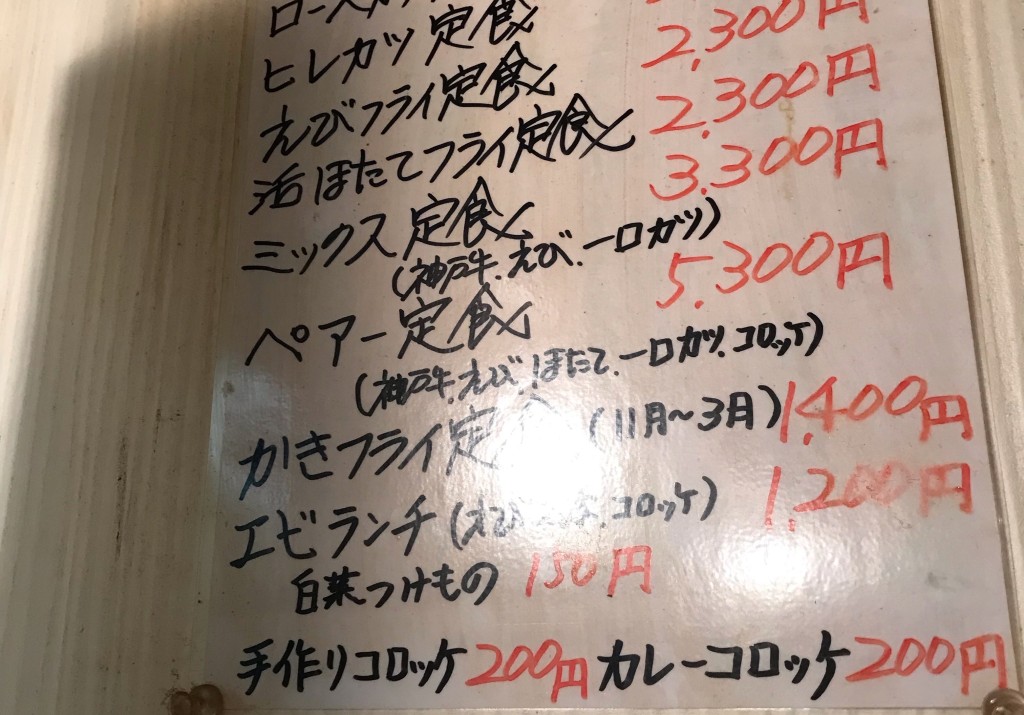 ヒレカツ定食
えびフライ定食 2,300円
活ほたてフライ定食 2,300円
ミックス定食 3,300円
(神戸牛、えび、一口カツ)
ペアー定食 5,300円
(神戸牛、えび、ほたて、一口カツ、コロッケ)
かきフライ定食 (11月〜3月) 1,400円
エビランチ (えび コロッケ) 1,200円
白菜つけもの 150円
手作りコロッケ 200円 カレーコロッケ 200円